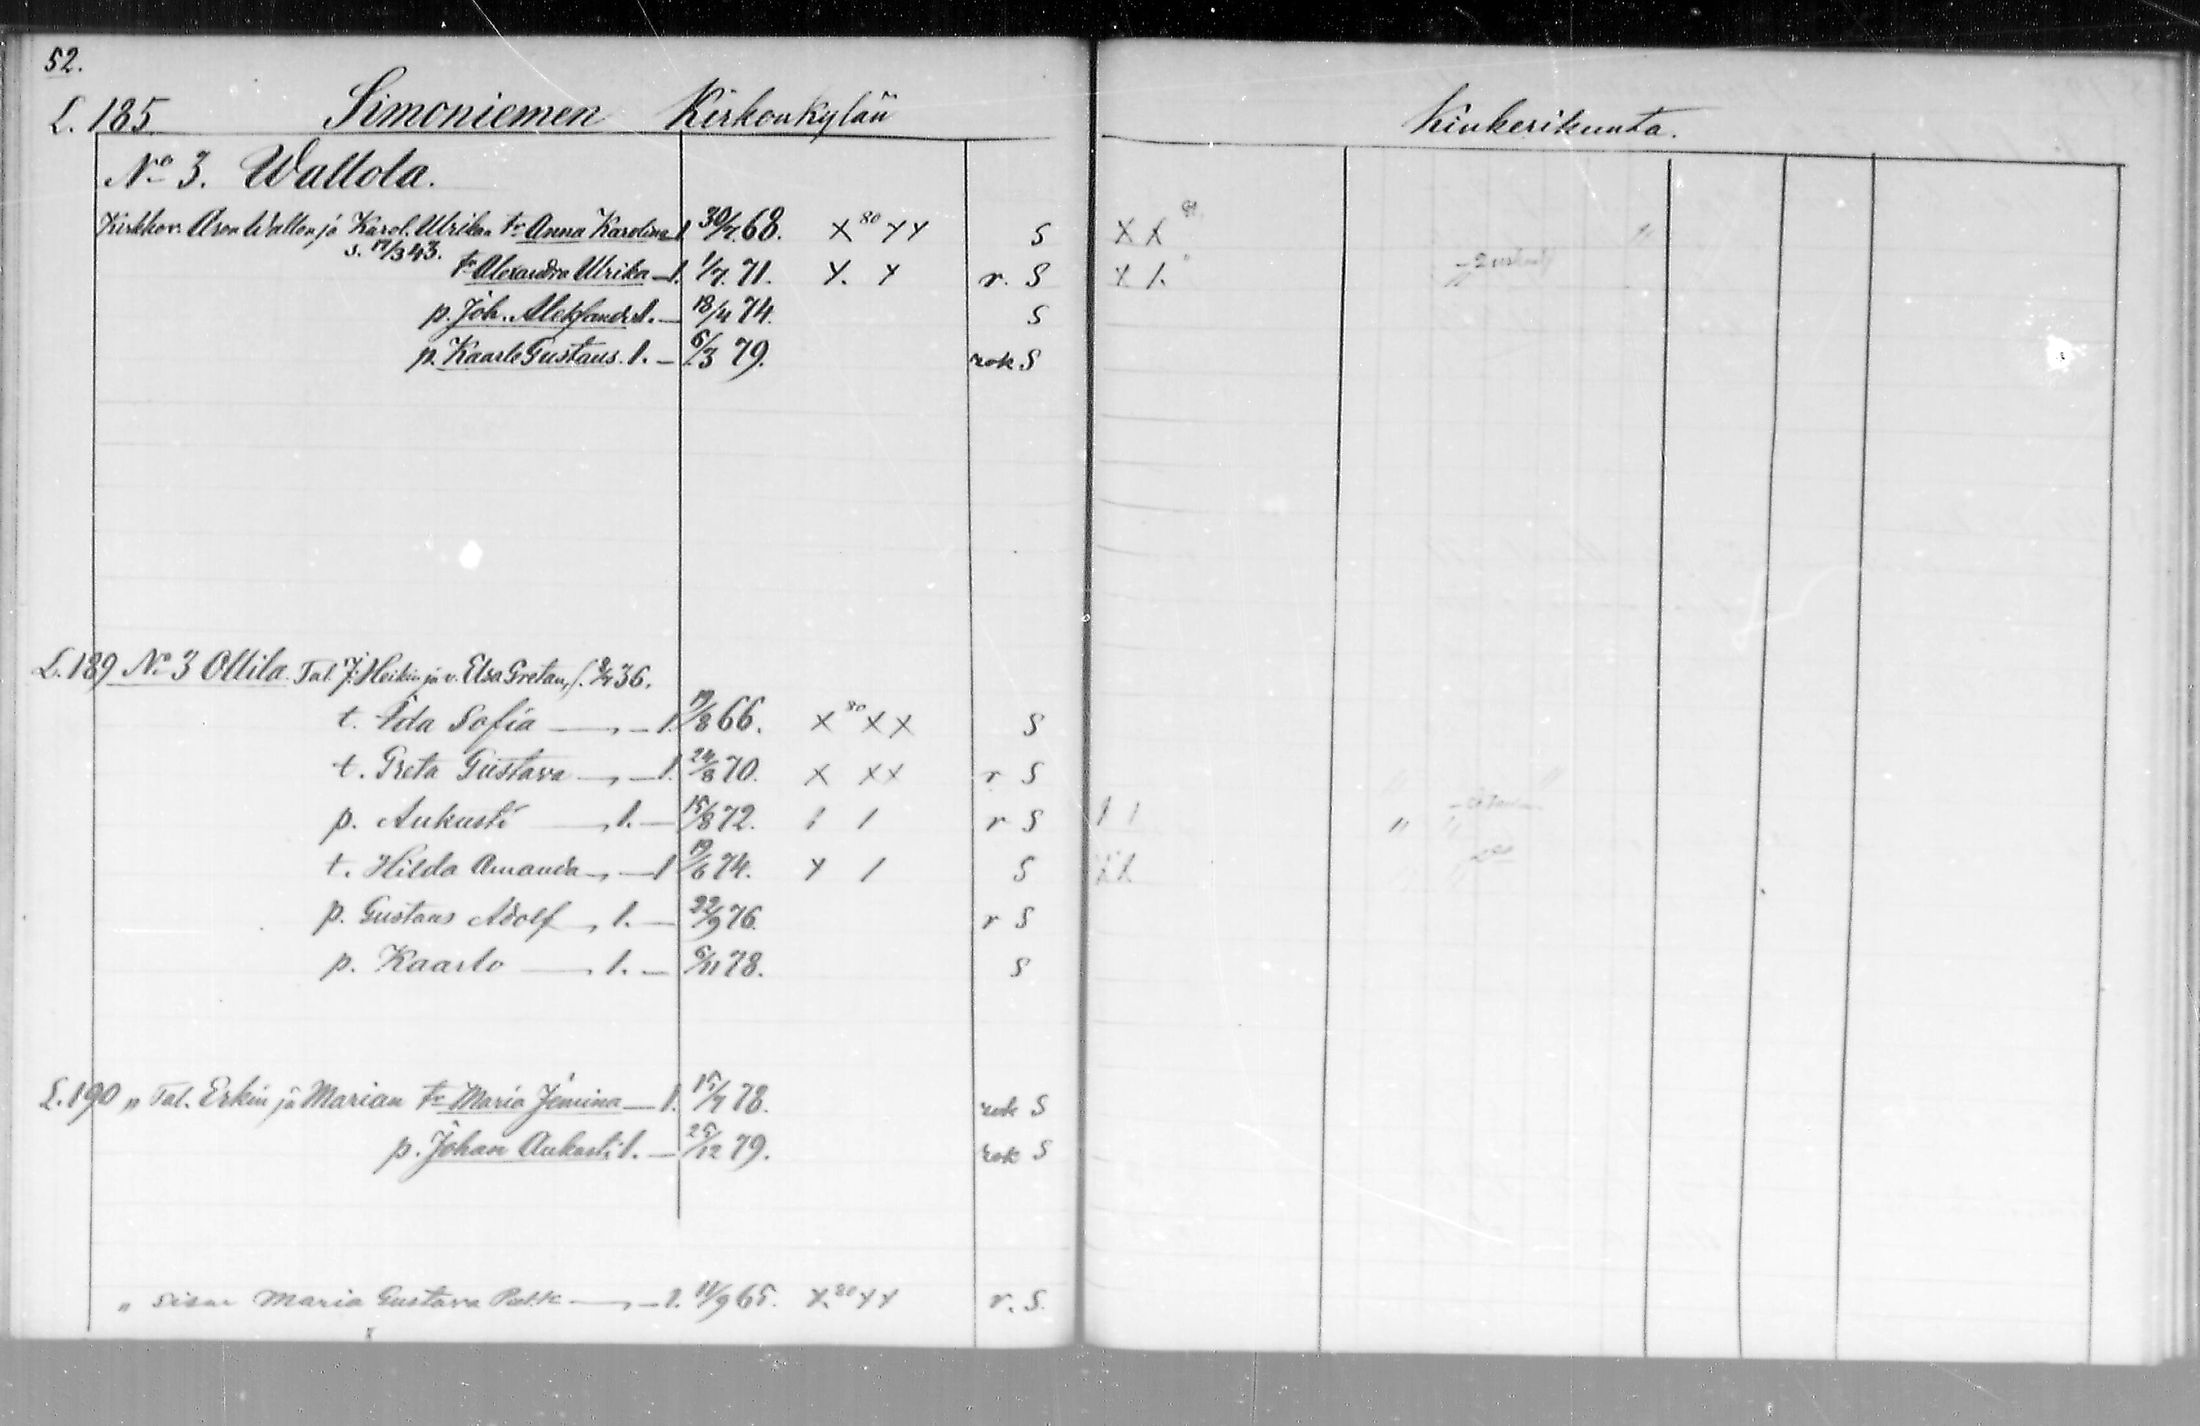 52.
L. 185. Simoniemen Kirkonkylän Kinkerikunta.
No 3. Wallola.
Kirkkov. Aron Wallon ja Karol. Ulrikan tr Anna Karolina l. 30/7 68. X 80 X X S X X
s. 17/3 43.
tr Alexandra Ulrika — l. 1/7. 71. X. X r. S X X.
p. Joh. Aleksander l. — 18/4 74. S
p. Kaarle Gustaus. l. — 6/3 79. rok S
L. 189 No 3 Ollila. Tal. J. Heikin ja v. Elsa Gretan, 36.
t. Ida Sofia — l. 19/8 66. X 80 X X S
t. Greta Gustava — l. 24/8 70. X X X r S
p. Aukusti — l. — 15/8 72. / / r S / /
t. Hilda Amanda — l 19/6 74. X / S X X
p. Gustaus Adolf l. — 22/9 76. r S
p. Kaarlo — l. — 6/11 78. S
L. 190 „ Tal. Erkin ja Marian tr Maria Jemina — l. 15/7 78. rok S
p. Johan Aukusti l. — 25/12 79. rok S
„ sisar Maria Gustava — l. 11/9 65. X. 80 X X r. S.